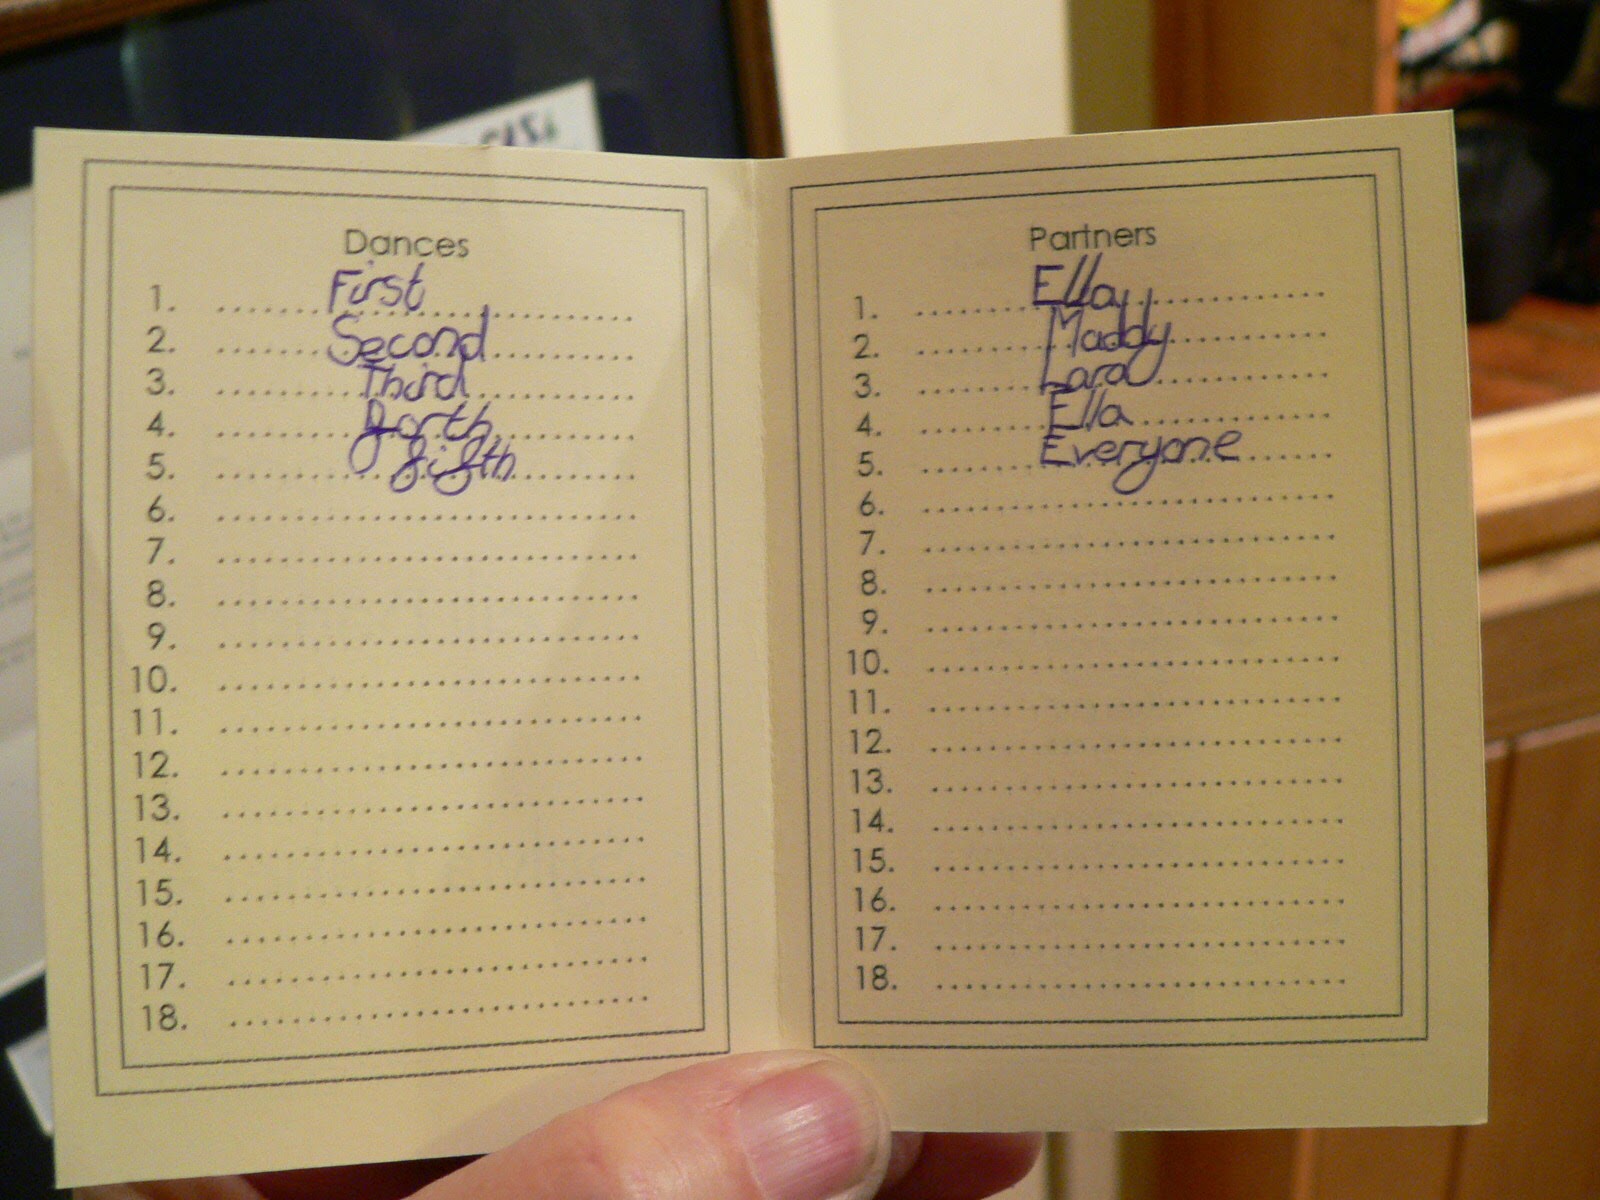 Dances
1. First
2. Second
3. Third
4. forth
5. fifth
6.
7.
8.
9.
10.
11.
12.
13.
14.
15.
16.
17.
18.
Partners
1. Ella
2. Maddy
3. Lara
4. Ella
5. Everyone
6.
7.
8.
9.
10.
11.
12.
13.
14.
15.
16.
17.
18.